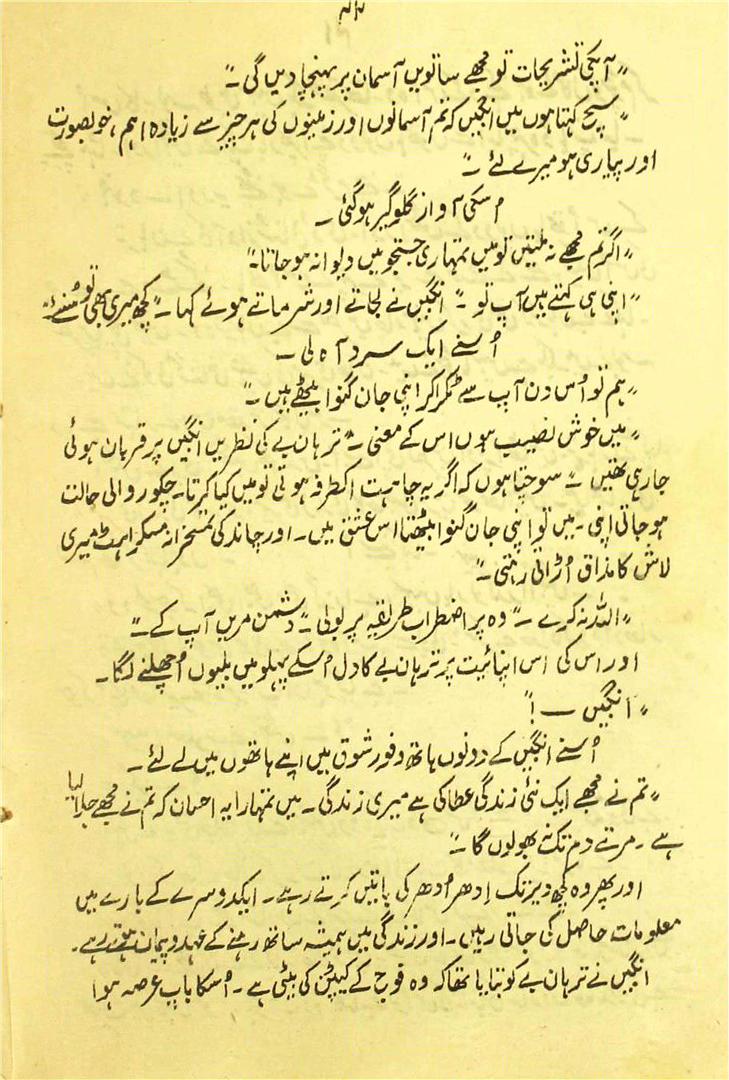 "آپکی تشریحات تو مجھے ساتویں آسمان پر پہنچا دیں گی۔"
"سچ کہتا ہوں میں انگبیں کہ تم آسمانوں اور زمینوں کی ہر چیز سے زیادہ اہم، خوبصورت
اور پیاری ہو میرے لئے ۔"
اُسکی آواز گلوگیر ہو گئی ۔
"اگر تم مجھے نہ ملتیں تو میں تمہاری جستجو میں دیوانہ ہو جاتا۔"
"اپنی ہی کہتے ہیں آپ تو ۔" انگبیں نے لجاتے اور شرماتے ہوئے کہا ۔ "کچھ میری بھی تو سُنئے۔"
اُسنے ایک سرد آہ لی ۔
"ہم تو اُس دن آپ سے ٹکرا کر اپنی جان گنوا بیٹھے ہیں ۔"
"میں خوش نصیب ہوں اس کے معنی ۔" ترہان بے کی نظریں انگبیں پر قربان ہوئی
جا رہی تھیں ۔ "سوچتا ہوں کہ اگر یہ چاہت اکطرفہ ہوتی تو میں کیا کرتا۔ چکور والی حالت
ہو جاتی اپنی ۔ میں تو اپنی جان گنوا بیٹھتا اس عشق میں ۔ اور چاند کی تمسخرانہ مسکراہٹ میری
لاش کا مذاق اُڑاتی رہتی ۔"
"اللہ نہ کرے ۔" وہ پر اضطراب طریقہ پر بولی ۔ "دشمن مریں آپ کے ۔"
اور اس کی اس اپنائیت پر ترہان بے کا دل اُسکے پہلو میں بلیوں اُچھلنے لگا ۔
"انگبیں ــــ !"
اُسنے انگبیں کے دونوں ہاتھ وفورِ شوق میں اپنے ہاتھوں میں لے لئے ۔
"تم نے مجھے ایک نئی زندگی عطا کی ہے میری زندگی ۔ میں تمہارا یہ احسان کہ تم نے مجھے جلا لیا
ہے ۔ مرتے دم تک نہ بھولوں گا ۔"
اور پھر وہ کچھ دیر تک اِدھر اُدھر کی باتیں کرتے رہے ۔ ایکدوسرے کے بارے میں
معلومات حاصل کی جاتی رہیں ۔ اور زندگی میں ہمیشہ ساتھ رہنے کے عہد و پیمان ہوتے رہے ۔
انگبیں نے ترہان بے کو بتایا تھا کہ وہ فوج کے کیپٹن کی بیٹی ہے ۔ اُسکا باپ عرصہ ہوا